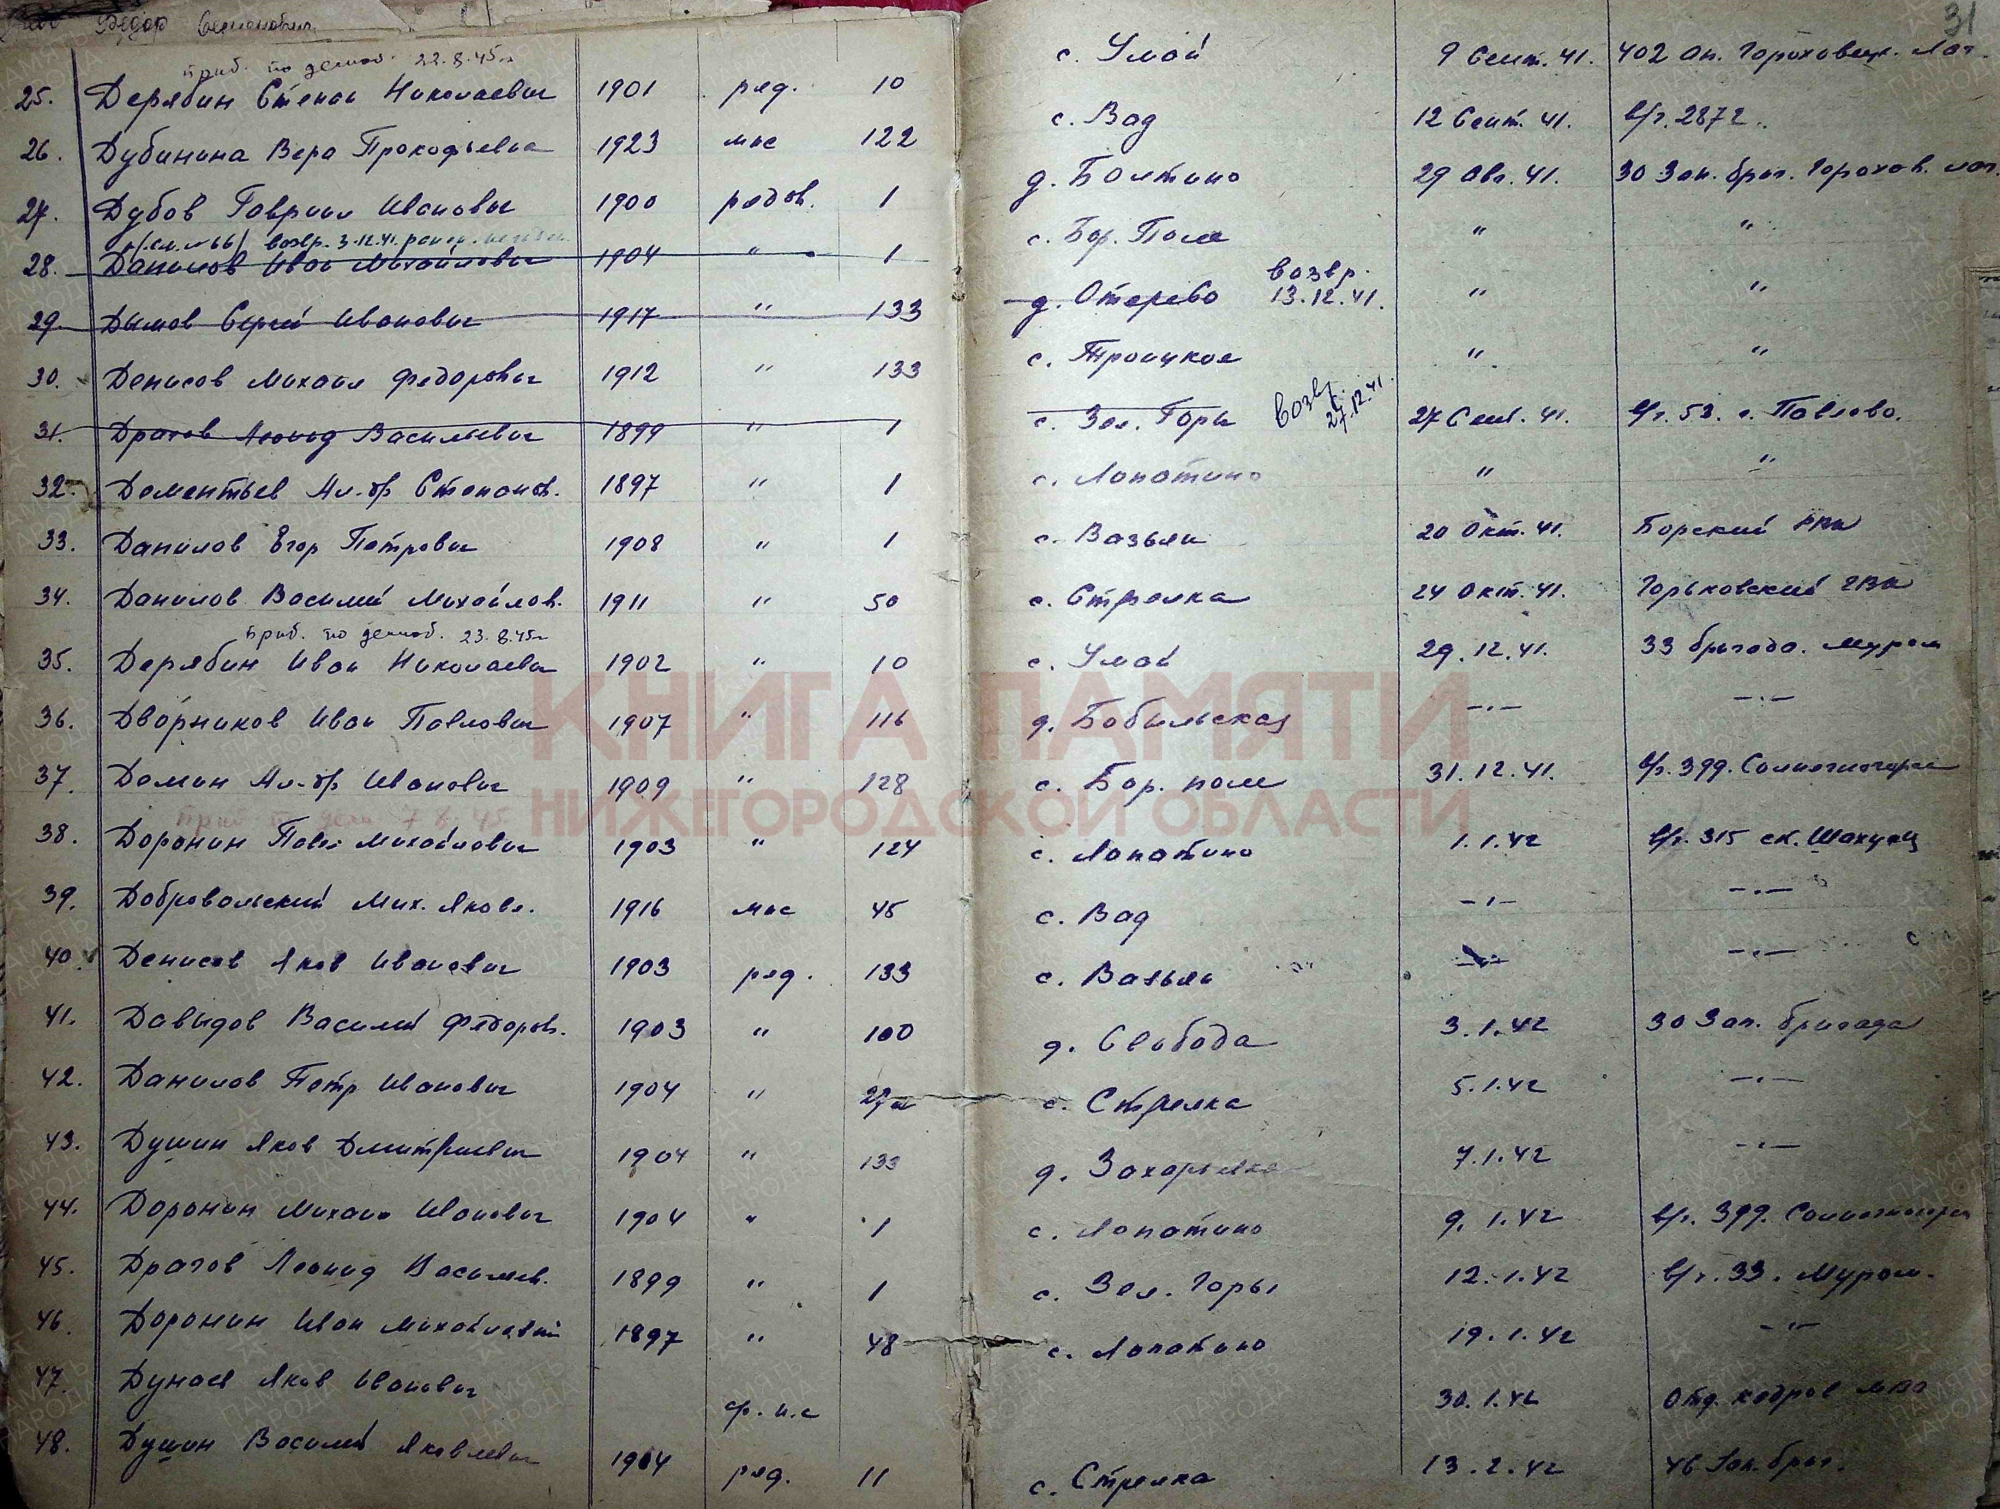 Федор Семенович
31
приб. по демоб. 22.8.45г
25. Дерябин Степан Николаевич 1901 ряд. 10 с. Умай 9 Сент. 41. 402 ап. Гороховец. лаг.
26. Дубинина Вера Прокофьевна 1923 мнс 122 с. Вад 12 Сент. 41. в/ч. 2872.
27. Дубов Гаврил Иванович 1900 рядов. 1 д. Болтино 29 Авг. 41. 30 Зап. бриг. Горохов. лаг.
/см. № 66/ возвр. 3.12.41.
28. Данилов Иван Михайлович 1904 " 1 с. Бор. Поле " "
29. Дымов Сергей Иванович 1917 " 133 д. Отерево возвр. 13.12.41. " "
30. Денисов Михаил Федорович 1912 " 133 с. Троицкое " "
31. Драгов Леонид Васильевич 1899 " 1 с. Зел. Горы возвр. 27.12.41. 27 Сент. 41. в/ч. 53. г. Павлово.
32. Дементьев Ал-др Степанов. 1897 " 1 с. Лопатино " "
33. Данилов Егор Петрович 1908 " 1 с. Вазьян 20 Окт. 41. Борский РВК
34. Данилов Василий Михайлов. 1911 " 50 с. Стрелка 24 Окт. 41. Горьковский ГВК
приб. по демоб. 23.8.45г
35. Дерябин Иван Николаевич 1902 " 10 с. Умай 29.12.41. 33 бригада. Муром
36. Дворников Иван Павлович 1907 " 116 д. Бобыльская —"— —"—
37. Демин Ал-др Иванович 1909 " 128 с. Бор. поле 31.12.41. в/ч. 399. Солнечногорск
приб. по дем 7 8. 45
38. Доронин Павел Михайлович 1903 " 124 с. Лопатино 1.1.42 в/ч. 315 ск. Шахунья
39. Добровольский Мих. Яковл. 1916 мнс 45 с. Вад —"— —"—
40. Денисов Яков Иванович 1903 ряд. 133 с. Вазьян —"— —"—
41. Давыдов Василий Федоров. 1903 " 100 д. Свобода 3.1.42 30 Зап. бригада
42. Данилов Петр Иванович 1904 " с. Стрелка 5.1.42 —"—
43. Душин Яков Дмитриевич 1904 " 133 д. Захарьевка 7.1.42 —"—
44. Доронин Михаил Иванович 1904 " 1 с. Лопатино 9.1.42 в/ч. 399. Солнечногорск
45. Драгов Леонид Васильев. 1899 " 1 с. Зел. Горы 12.1.42 в/ч. 33. Муром.
46. Доронин Иван Михайлович 1897 " 48 с. Лопатино 19.1.42 —"—
47. Дунаев Яков Иванович ср. н.с 30.1.42 Отд. кадров МВО
48. Душин Василий Яковлевич 1904 ряд. 11 с. Стрелка 13.2.42 46 Зап. бриг.
КНИГА ПАМЯТИ
НИЖЕГОРОДСКОЙ ОБЛАСТИ